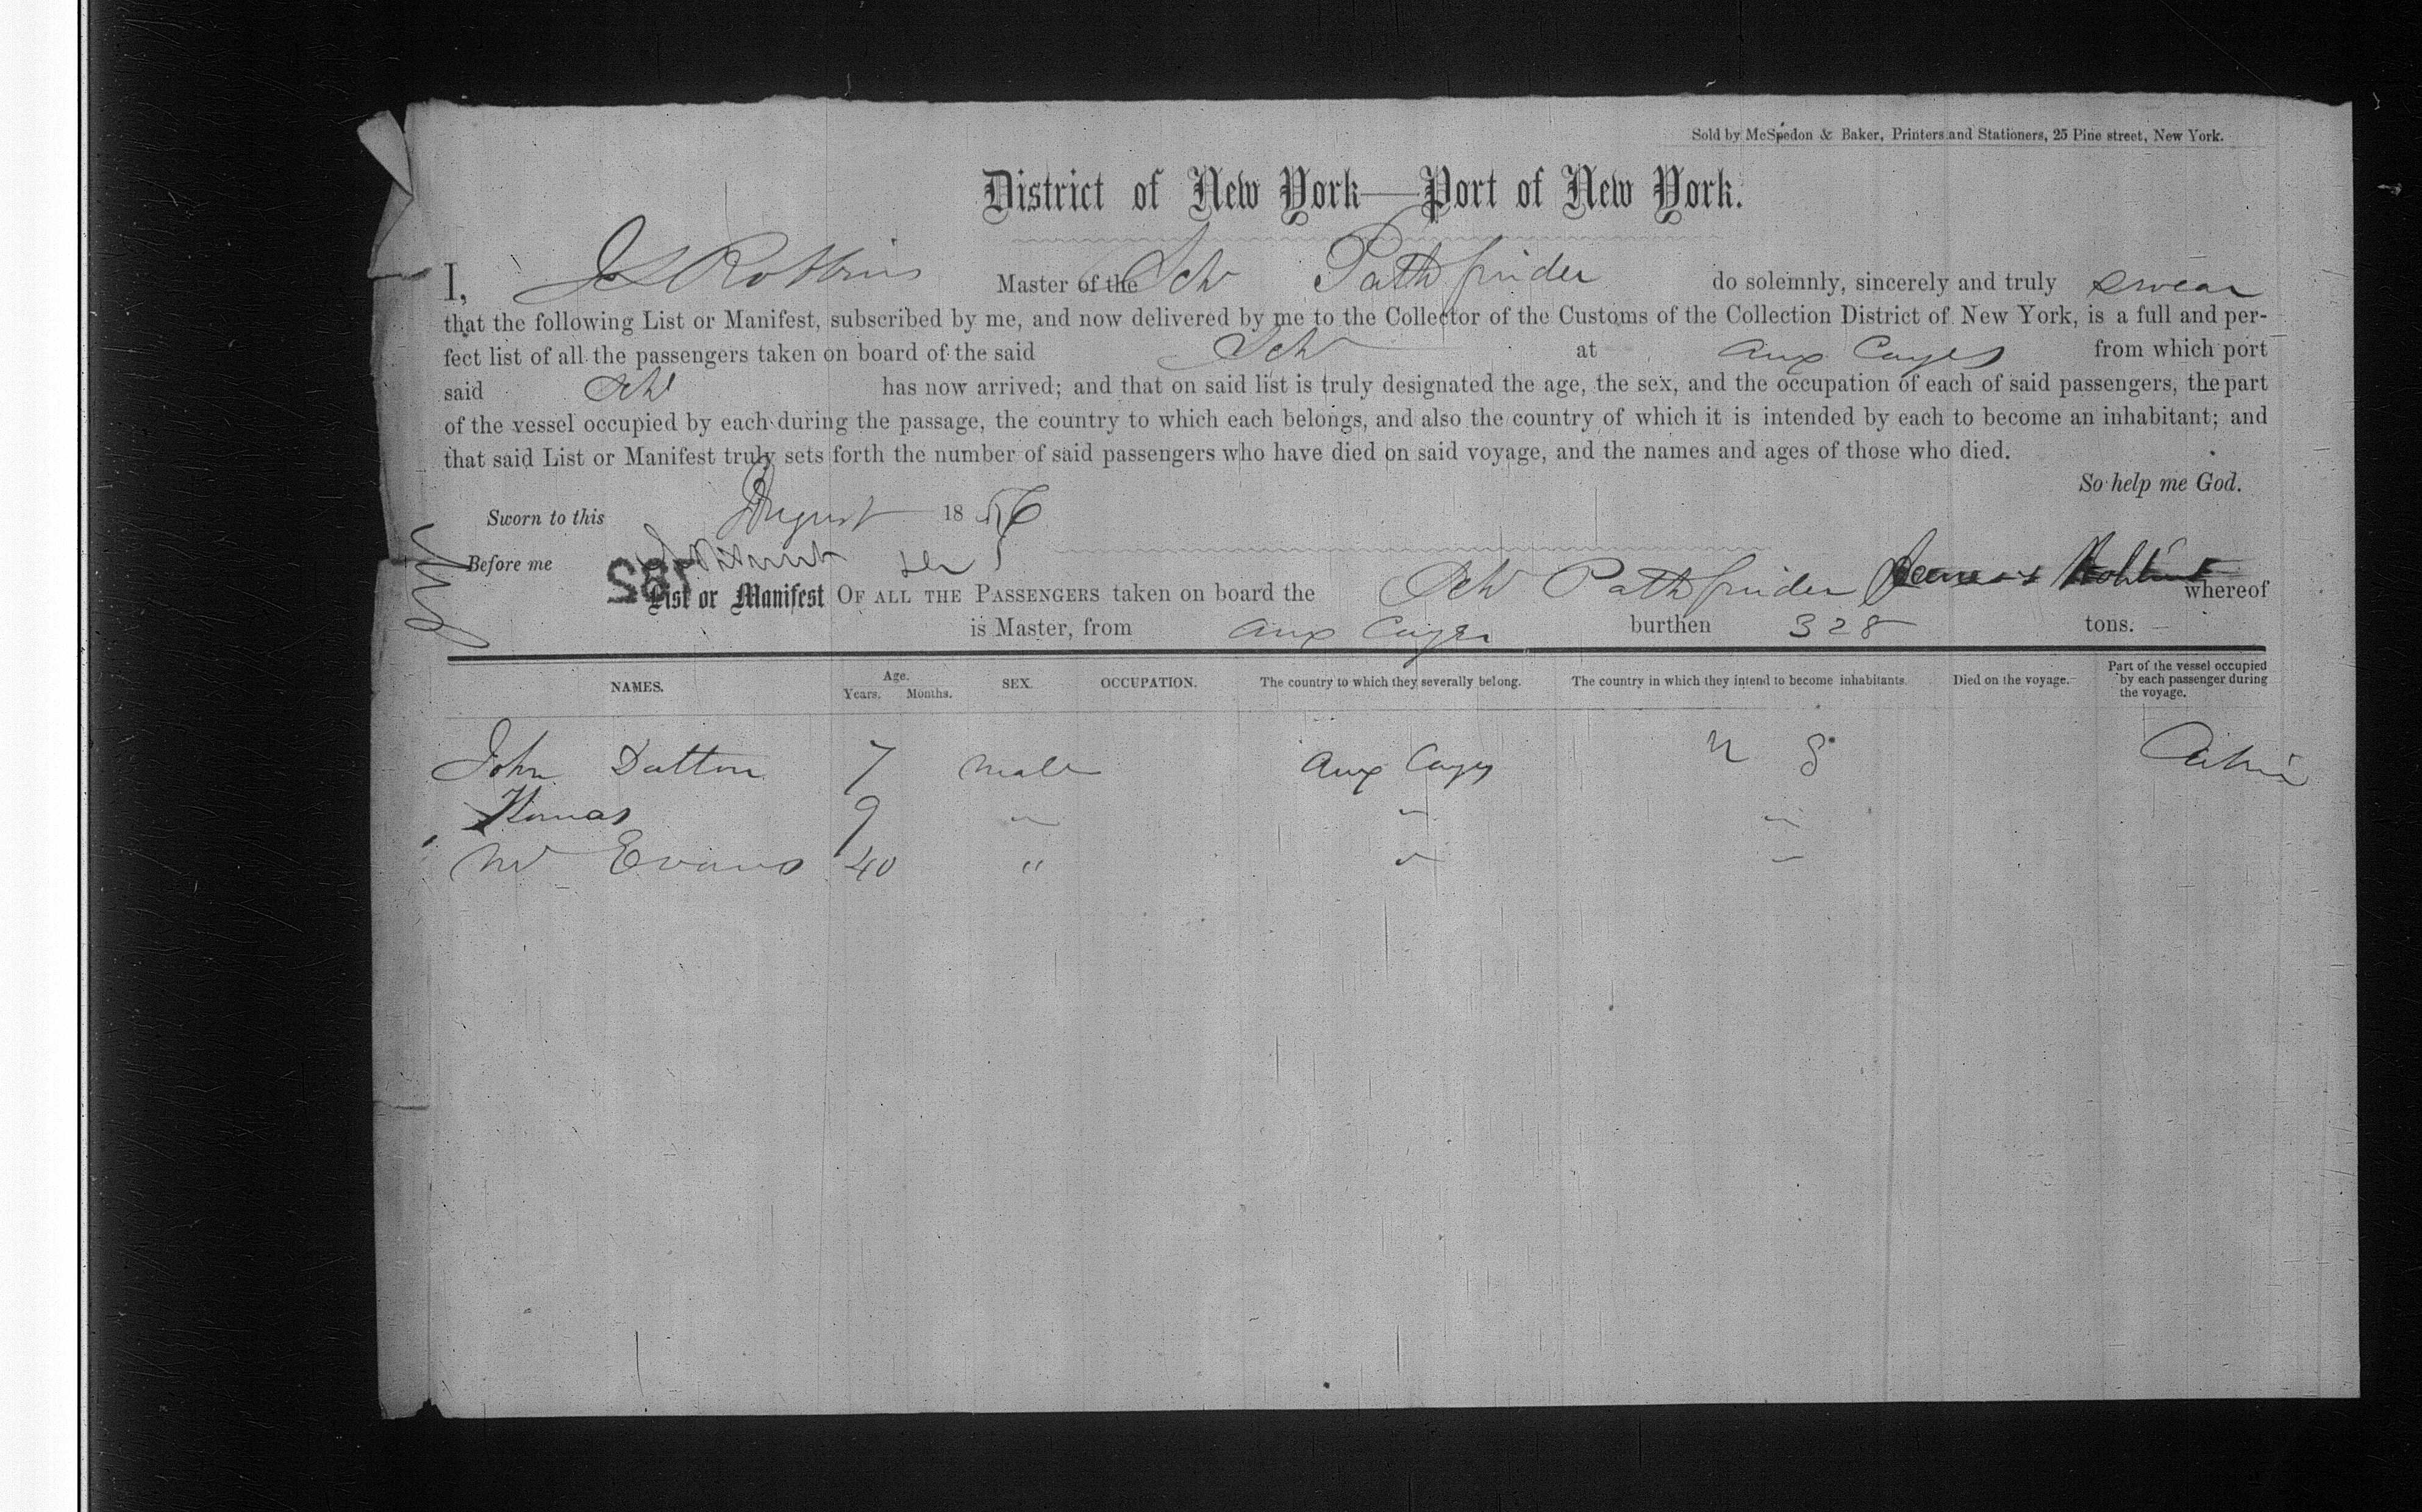 Sold by McSpedon & Baker, Printers and Stationers, 25 Pine street, New York.
District of New York—Port of New York.
I, J S Robbins Master of the Sch Pathfinder do solemnly, sincerely and truly swear
that the following List or Manifest, subscribed by me, and now delivered by me to the Collector of the Customs of the Collection District of New York, is a full and per-
fect list of all the passengers taken on board of the said Sch at Aux Cayes from which port
said Sch has now arrived; and that on said list is truly designated the age, the sex, and the occupation of each of said passengers, the part
of the vessel occupied by each during the passage, the country to which each belongs, and also the country of which it is intended by each to become an inhabitant; and
that said List or Manifest truly sets forth the number of said passengers who have died on said voyage, and the names and ages of those who died.
So help me God.
Sworn to this August 1856
Before me
List or Manifest OF ALL THE PASSENGERS taken on board the Sch Pathfinder whereof
is Master, from Aux Cayes burthen 328 tons.
NAMES. Age. Years. Months. SEX. OCCUPATION. The country to which they severally belong. The country in which they intend to become inhabitants. Died on the voyage. Part of the vessel occupied by each passenger during the voyage.
John Dutton 7 male Aux Cayes U S Cabin
Thomas 9 " " "
Mr Evans 40 " " "